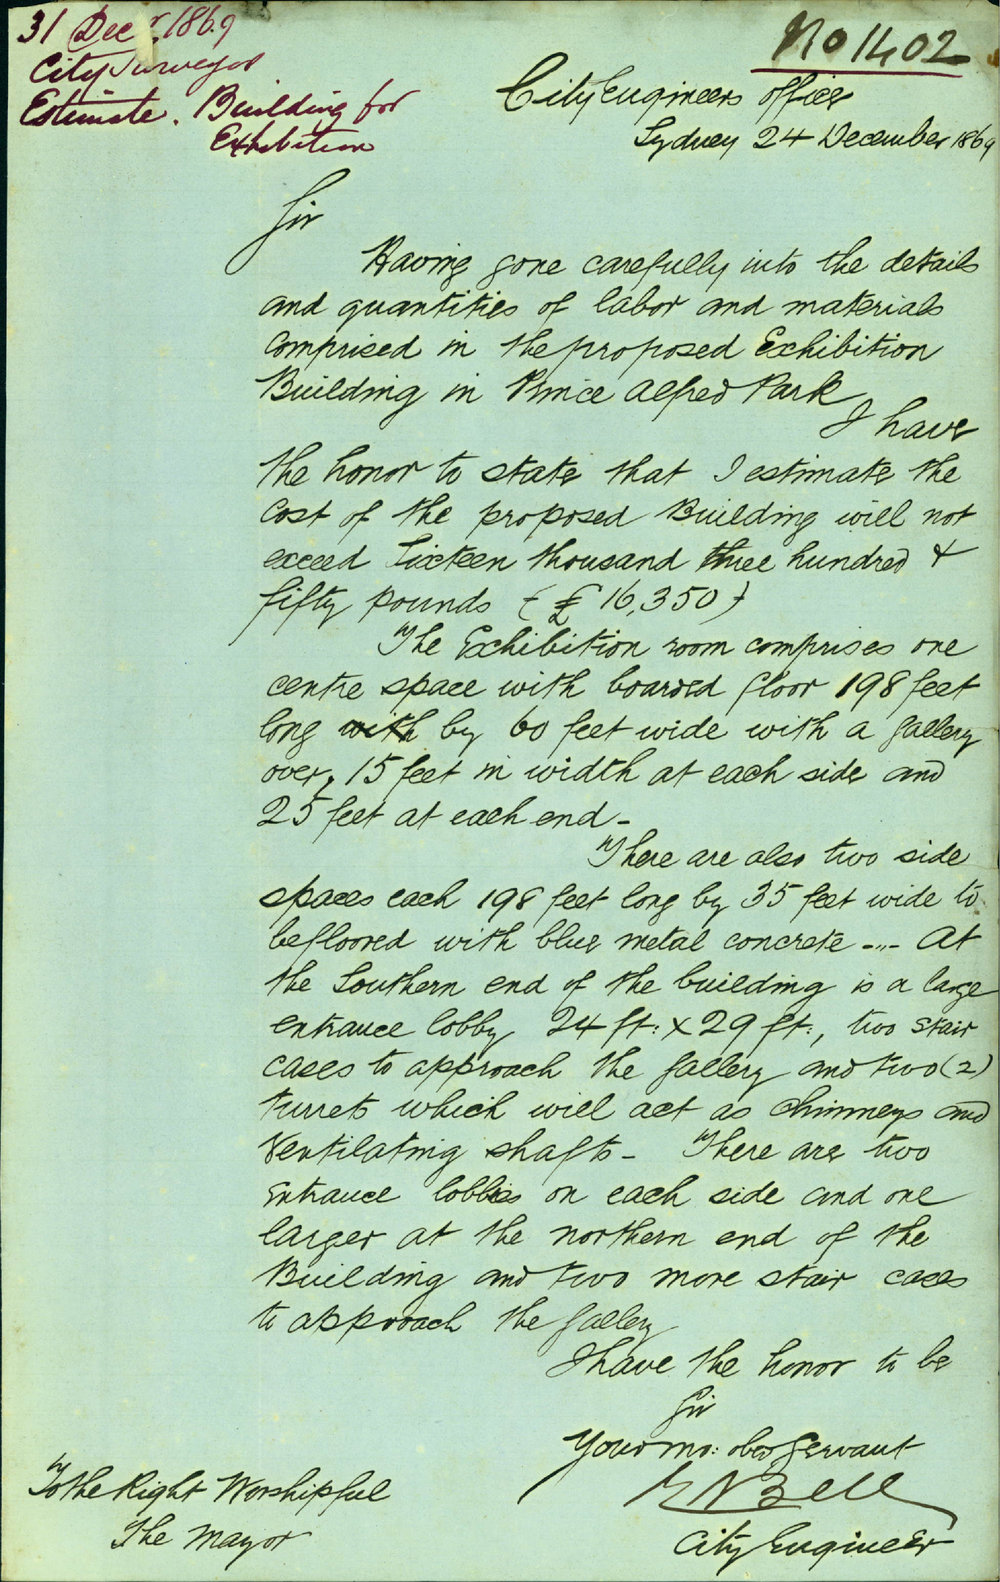 31 Decr. 1869
City Surveyor
Estimate. Building for
Exhibition
No 1402
City Engineers Office
Sydney 24 December 1869
Sir
Having gone carefully into the details
and quantities of labor and materials
comprised in the proposed Exhibition
Building in Prince Alfred Park
I have
the honor to state that I estimate the
Cost of the proposed Building will not
exceed Sixteen thousand three hundred &
fifty pounds (£16,350)
The Exhibition room comprises one
centre space with boarded floor 198 feet
long with by 60 feet wide with a gallery
over, 15 feet in width at each side and
25 feet at each end -
There are also two side
spaces each 198 feet long by 35 feet wide to
be floored with blue metal concrete -"- At
the Southern end of the building is a large
entrance lobby 24 ft: x 29 ft:, two stair
cases to approach the gallery and two (2)
turrets which will act as chimneys and
Ventilating shafts - There are two
Entrance lobbies on each side and one
larger at the northern end of the
Building and two more stair cases
to approach the gallery
I have the honor to be
Sir
Your mo: obed Servant
Bell
City Engineer
To the Right Worshipful
The Mayor